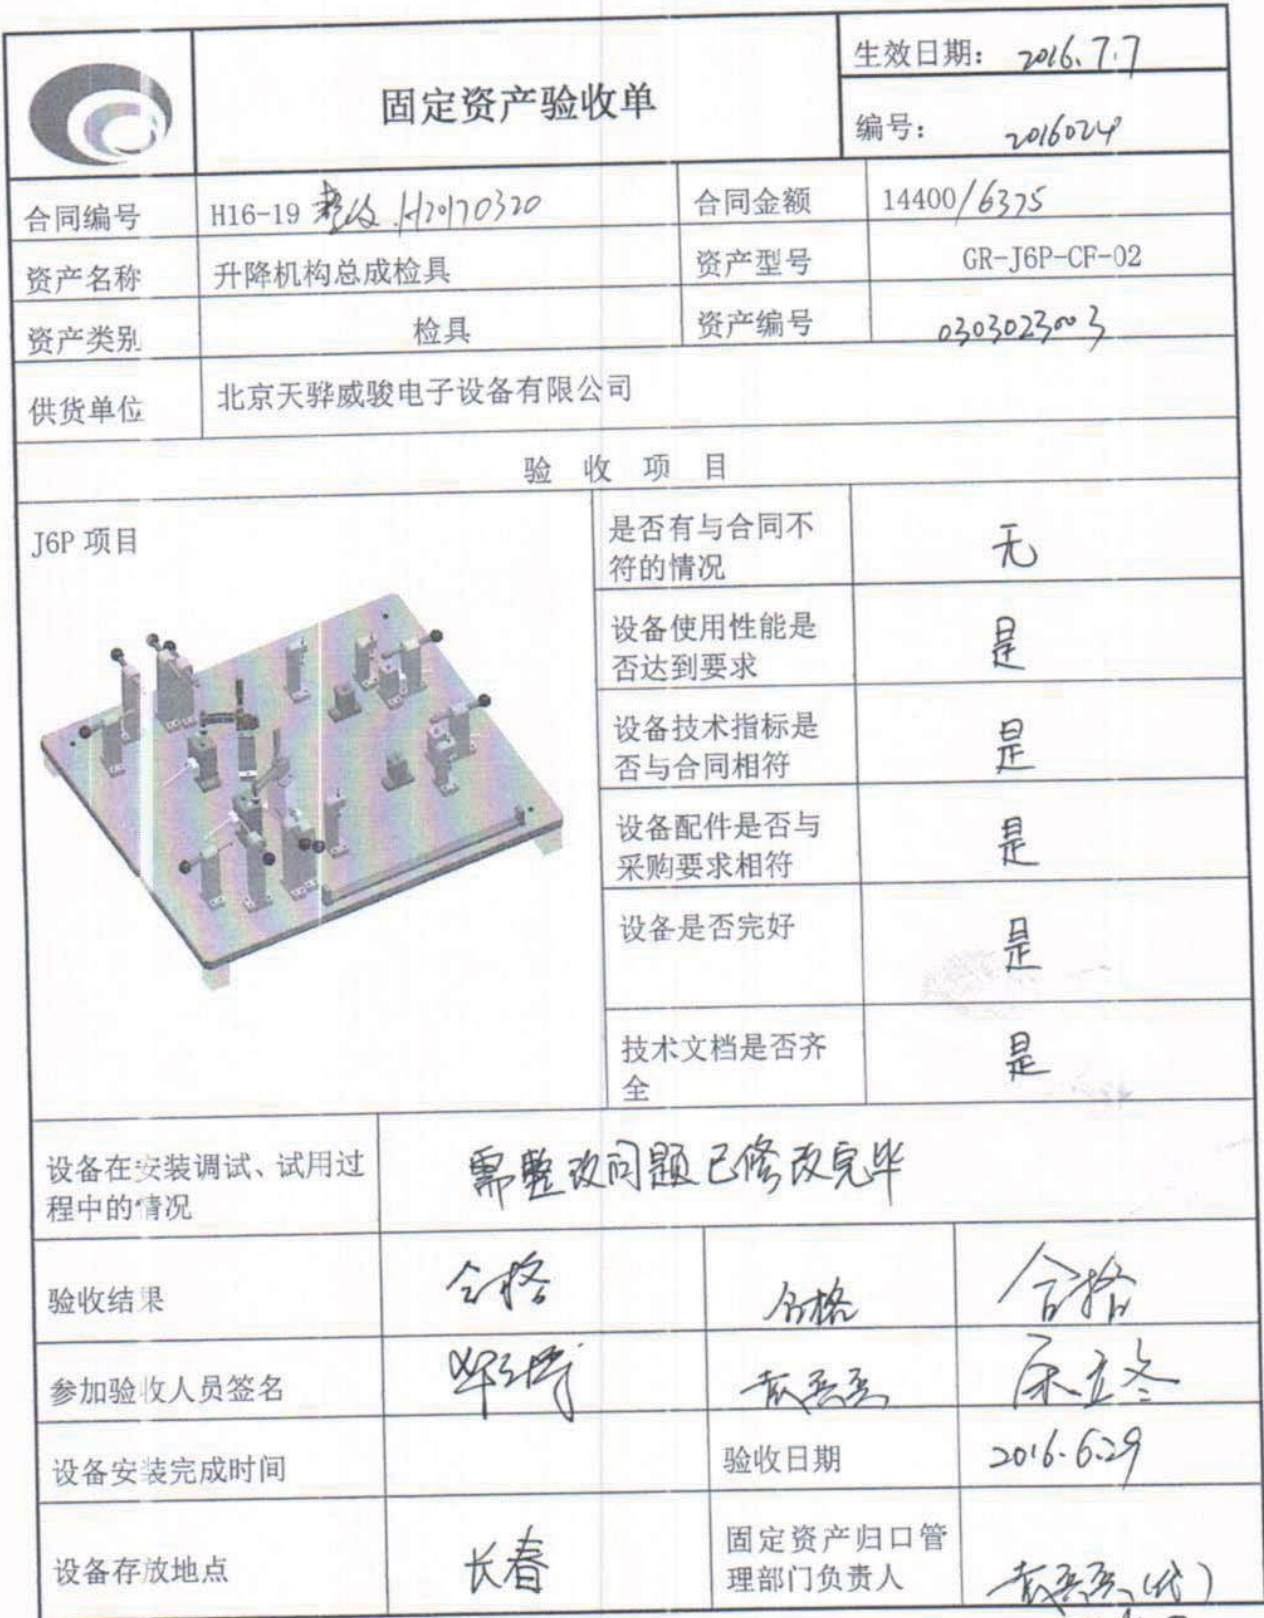 固定资产验收单
生效日期： 2016.7.7
编号： 2016024
合同编号 H16-19 整改.H20170320 合同金额 14400/6375
资产名称 升降机构总成检具 资产型号 GR-J6P-CF-02
资产类别 检具 资产编号 0303023003
供货单位 北京天骅威骏电子设备有限公司
验 收 项 目
J6P 项目
是否有与合同不
符的情况 无
设备使用性能是
否达到要求 是
设备技术指标是
否与合同相符 是
设备配件是否与
采购要求相符 是
设备是否完好 是
技术文档是否齐
全 是
设备在安装调试、试用过
程中的情况 需整改问题已修改完毕
验收结果 合格 合格 合格
参加验收人员签名
设备安装完成时间 验收日期 2016.6.29
设备存放地点 长春 固定资产归口管
理部门负责人 (代)